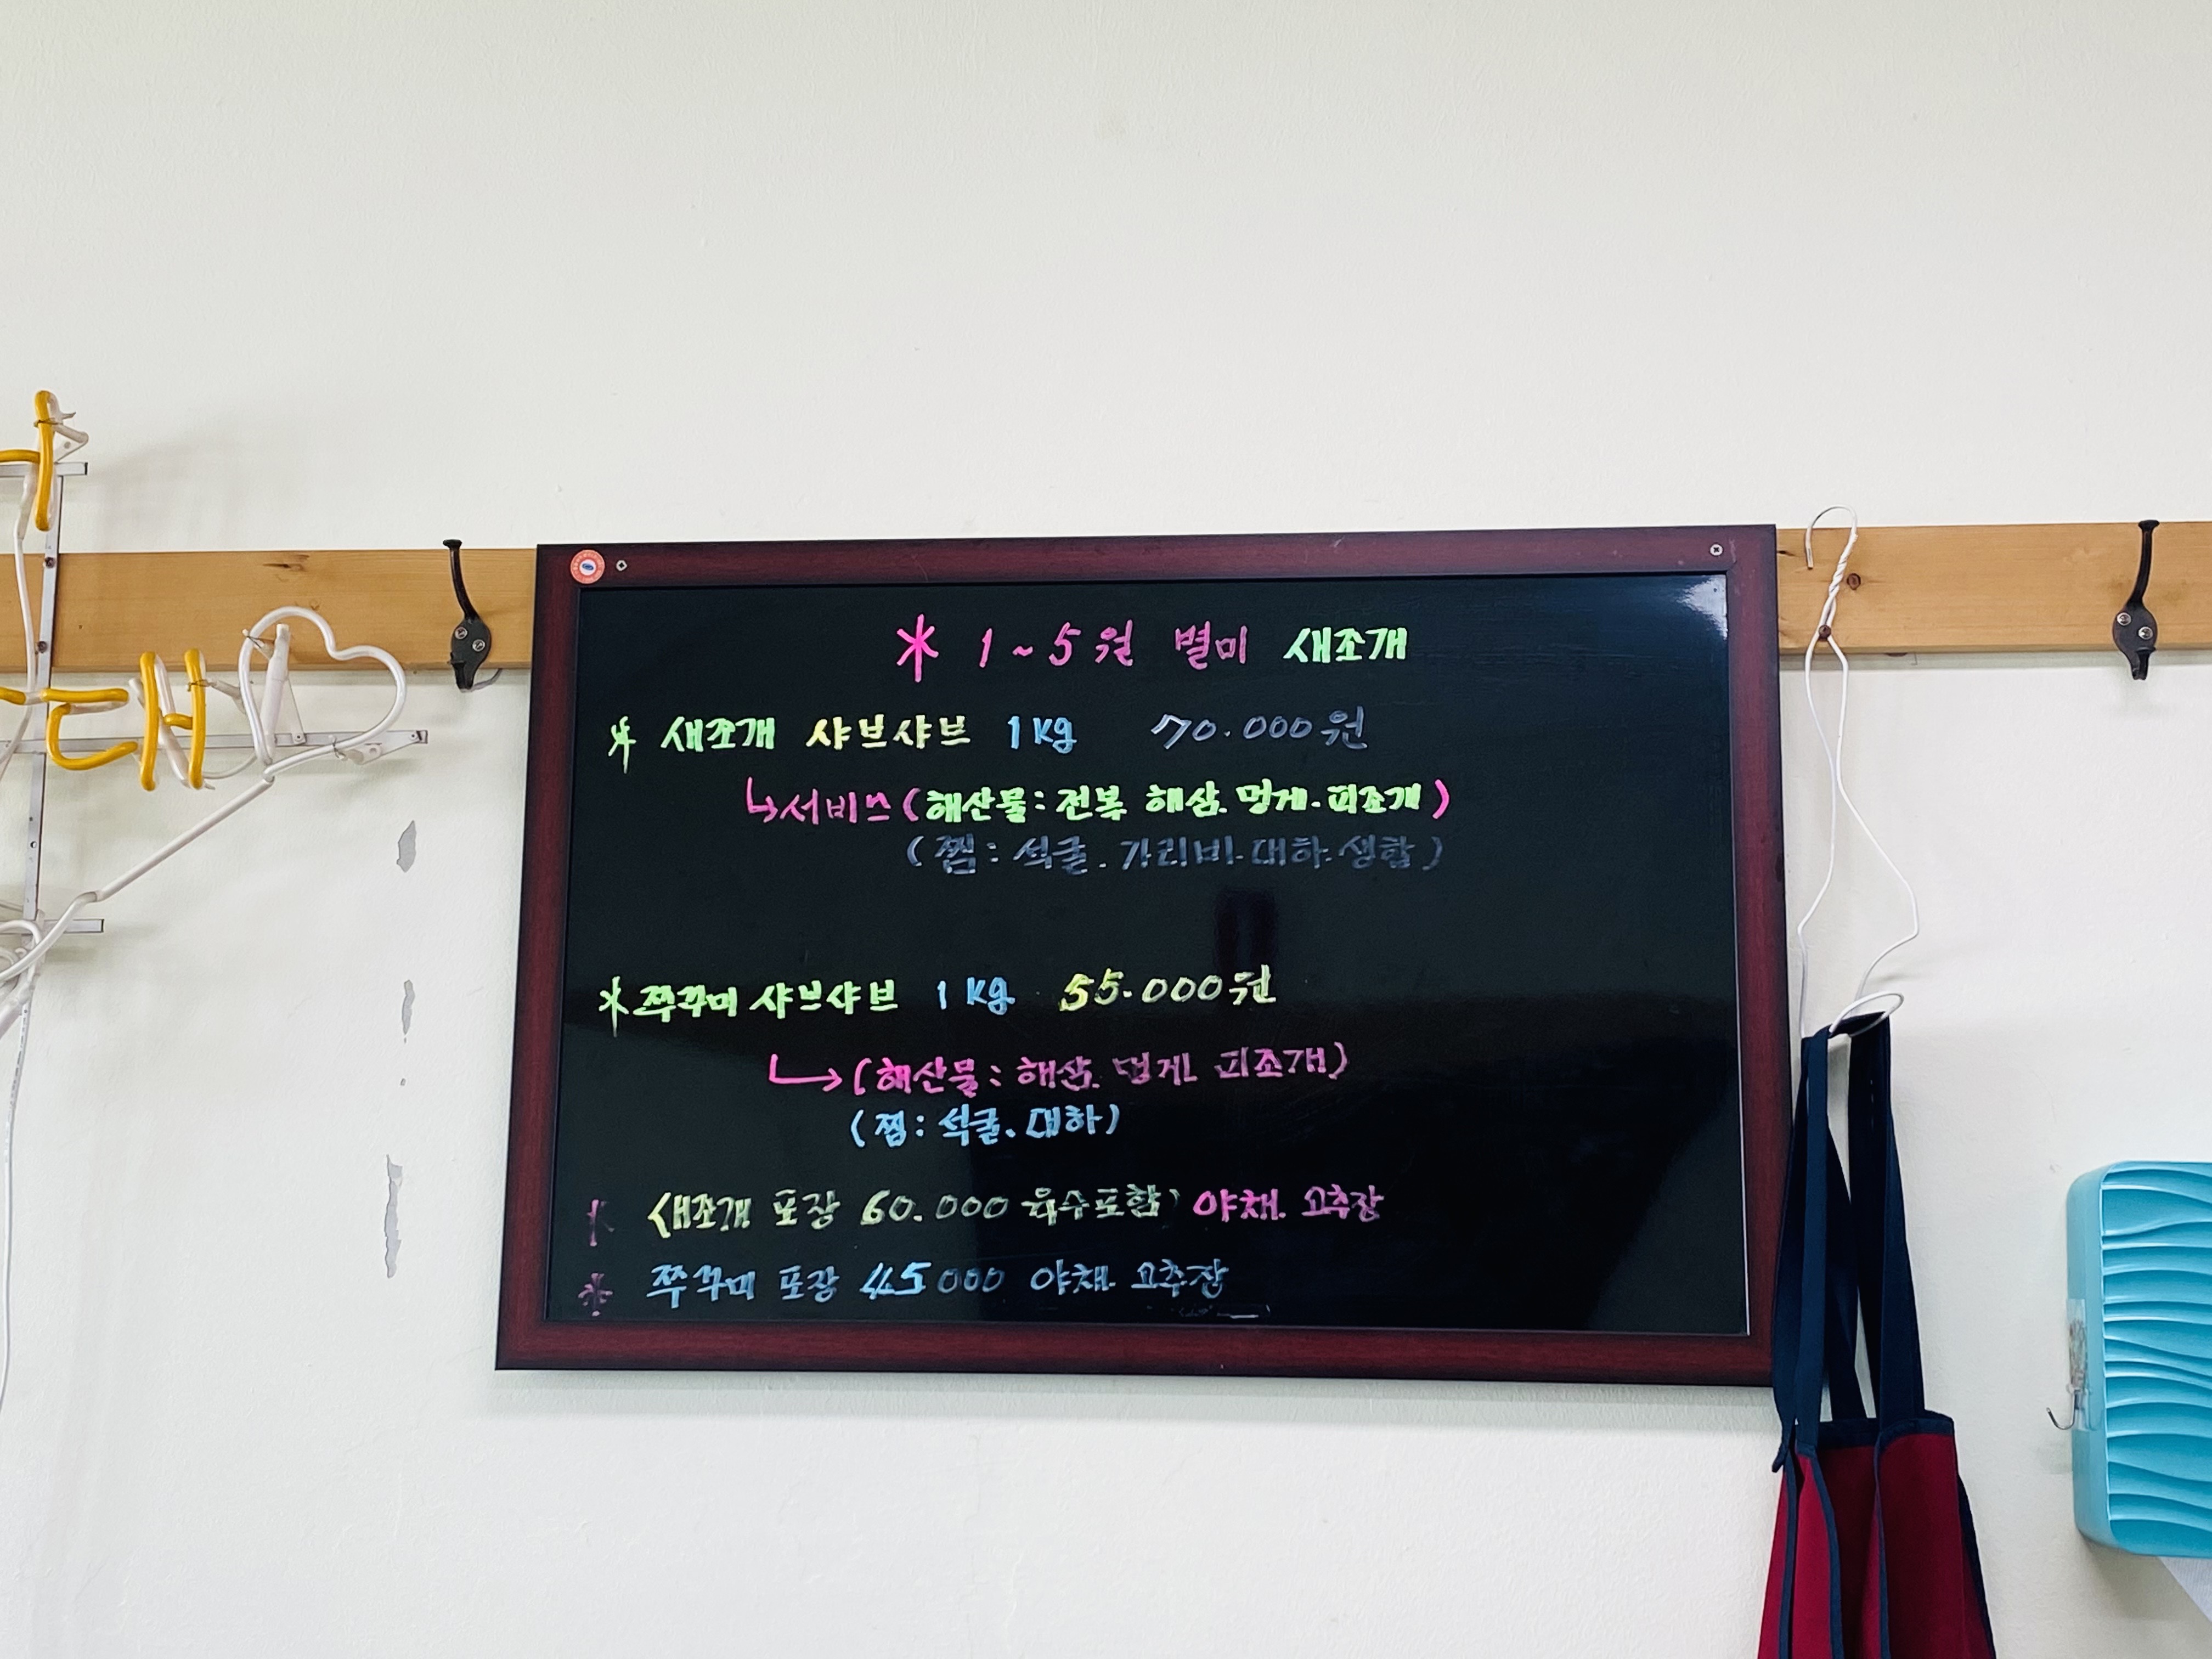 * 1~5월 별미 새조개
* 새조개 샤브샤브 1kg 70.000원
↳서비스 (해산물: 전복 해삼. 멍게. 피조개)
(찜: 석굴. 가리비. 대하. 생합)
* 쭈꾸미 샤브샤브 1kg 55.000원
↳(해산물: 해삼. 멍게 피조개)
(찜: 석굴. 대하)
* 새조개 포장 60.000 육수포함) 야채. 고추장
* 쭈꾸미 포장 45000 야채. 고추장
대